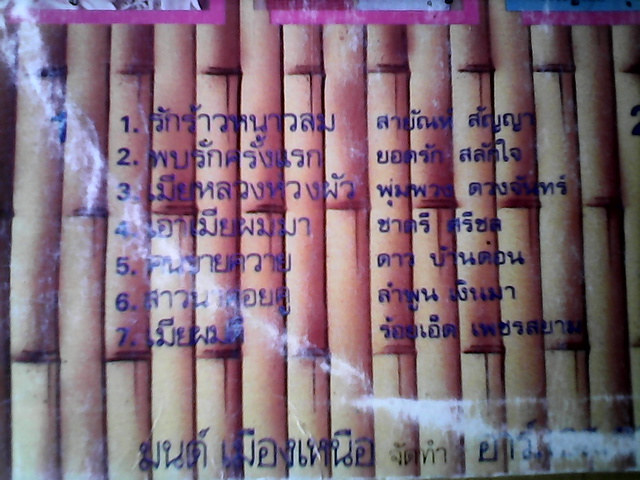 1. รักร้าวหนาวลม สายัณห์ สัญญา
2. พบรักครั้งแรก ยอดรัก สลักใจ
3. เมียหลวงหวงผัว พุ่มพวง ดวงจันทร์
4. เอาเมียผมมา ชาตรี ศรีชล
5. คนขายควาย ดาว บ้านดอน
6. สาวนาคอยคู่ ลำพูน เงินมา
7. เมียผมดี ร้อยเอ็ด เพชรสยาม
มนต์ เมืองเหนือ จัดทำ